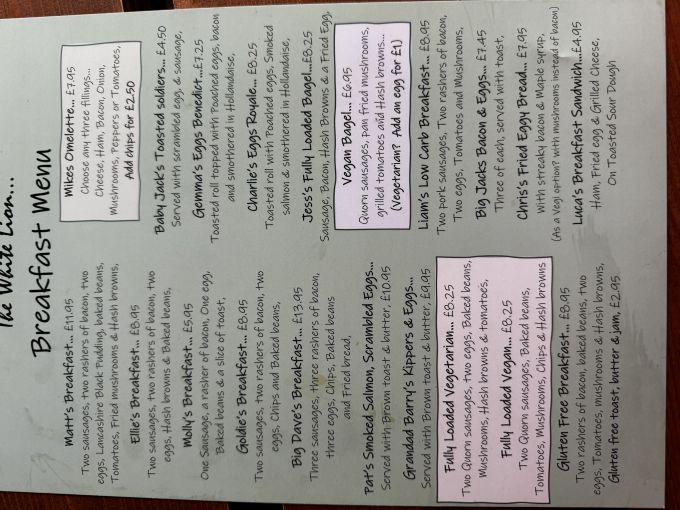 The White Lion...
Breakfast Menu
Matt's Breakfast... £11.95
Two sausages, two rashers of bacon, two
eggs, Lancashire Black Pudding, baked beans,
Tomatoes, Fried mushrooms & Hash browns,
Ellie's Breakfast... £8.95
Two sausages, two rashers of bacon, two
eggs, Hash browns & Baked beans,
Molly's Breakfast... £5.95
One Sausage, a rasher of bacon, One egg,
Baked beans & a slice of toast,
Goldie's Breakfast... £8.95
Two sausages, two rashers of bacon, two
eggs, Chips and Baked beans,
Big Dave's Breakfast... £13.95
Three sausages, three rashers of bacon,
three eggs, Chips, Baked beans
and Fried bread,
Pat's Smoked Salmon, Scrambled Eggs...
Served with Brown toast & butter, £10.95
Grandad Barry's Kippers & Eggs...
Served with Brown toast & butter, £9.95
Fully Loaded Vegetarian... £8.25
Two Quorn sausages, two eggs, Baked beans,
Mushrooms, Hash browns & tomatoes,
Fully Loaded Vegan... £8.25
Two Quorn sausages, Baked beans,
Tomatoes, Mushrooms, Chips & Hash browns
Gluten Free Breakfast... £8.95
Two rashers of bacon, baked beans, two
eggs, Tomatoes, mushrooms & Hash browns,
Gluten free toast, butter & jam, £2.95
Mikes Omelette... £7.95
Choose any three fillings...
Cheese, Ham, Bacon, Onion,
Mushrooms, Peppers or Tomatoes,
Add chips for £2.50
Baby Jack's Toasted soldiers... £4.50
Served with scrambled egg, & sausage,
Gemma's Eggs Benedict...£7.25
Toasted roll topped with Poached eggs, bacon
and smothered in Hollandaise,
Charlie's Eggs Royale... £8.25
Toasted roll with Poached eggs, Smoked
salmon & smothered in Hollandaise,
Jess's Fully Loaded Bagel...£8.25
Sausage, Bacon, Hash Browns & a Fried Egg,
Vegan Bagel... £6.95
Quorn sausages, pan fried mushrooms,
grilled tomatoes and Hash browns...
(Vegetarian? Add an egg for £1)
Liam's Low Carb Breakfast... £8.95
Two pork sausages, Two rashers of bacon,
Two eggs, Tomatoes and Mushrooms,
Big Jacks Bacon & Eggs... £7.45
Three of each, served with toast,
Chris's Fried Eggy Bread... £7.95
With streaky bacon & Maple syrup,
(As a Vegi option? with mushrooms instead of bacon)
Luca's Breakfast Sandwich...£4.95
Ham, Fried egg & Grilled Cheese,
On Toasted Sour Dough